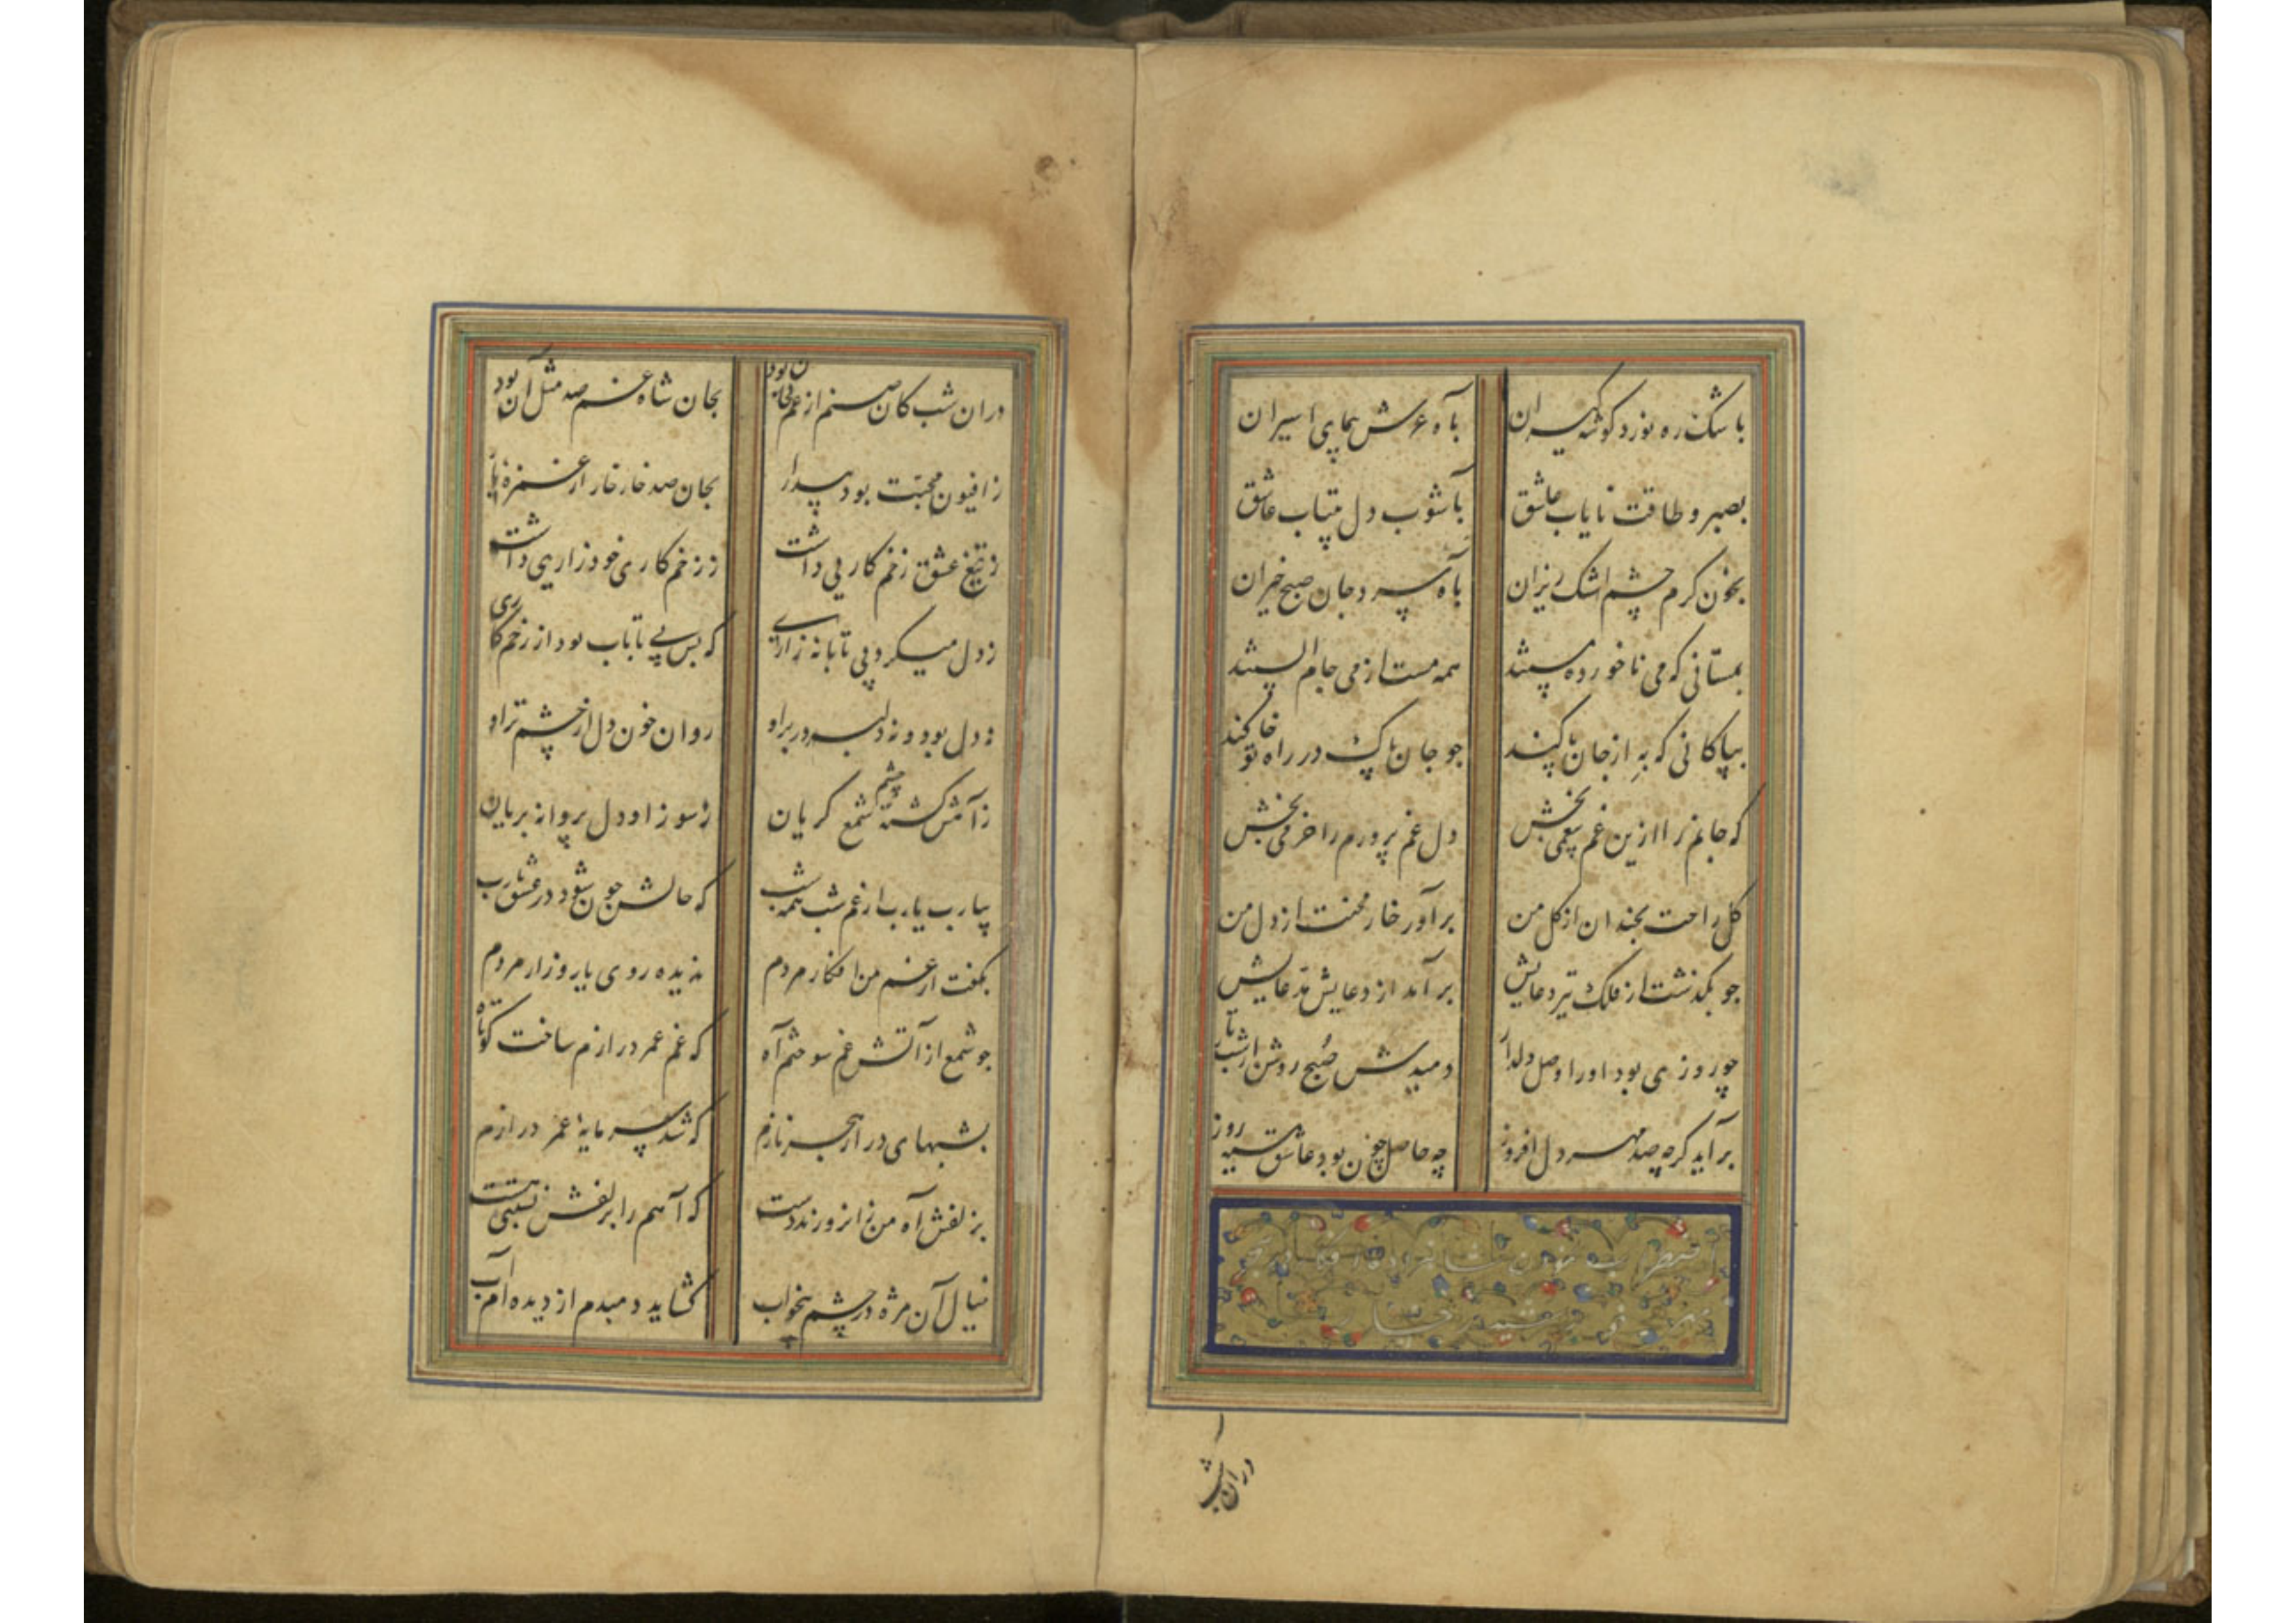 باشک ره نورد گوشه گیران باه عرش پیمای اسیران
بصبر و طاقت نایاب عاشق بآشوب دل بیتاب عاشق
بخون گرم چشم اشک ریزان باه سرد جان صبح خیزان
بمستانی که می ناخورده مستند همه مست از می جام الستند
بپاکانی که به از جان پاکند جو جان پاک در راه تو خاکند
که جانم را ازین غم بیغمی بخش دل غم پرورم را خرمی بخش
کل راحت بخندان از کل من برآور خار محنت از دل من
جو بگذشت از فلک تیر دعایش برآمد از دعایش مدعایش
چو روزی بود او را وصل دلدار دمیدش صبح روشن از شب تار
برآید گرچه صد مهر دل افروز چه حاصل چون بود عاشق سیه روز
دران شب
دران شب کان صنم از غم بجان بود بجان شاه غم صد مثل آن بود
ز افیون محبت بود بیدار بجان صد خار خار از غمزه یار
ز تیغ عشق زخم کاریی داشت ز زخم کاری خود زاریی داشت
ز دل میکرد بی تابانه زاری که بس بی تاب بود از زخم کاری
نه دل بود و نه دلبر در بر او روان خون دل از چشم تر او
ز آهش گشته چشم شمع گریان ز سوز او دل پروانه بریان
بیارب یارب از غم شب همه شب که حالش چون شود در عشق یارب
بگفت از غم من افکار مردم ندیده روی یار و زار مردم
جو شمع از آتش غم سوختم آه که غم عمر درازم ساخت کوتاه
بشبهای دراز هجر نازم که شد سرمایه عمر درازم
بزلفش آه من زانرو زند دست که آهم را بزلفش نسبتی هست
خیال آن مژه در چشم بیخواب گشاید دمبدم از دیده‌ام آب